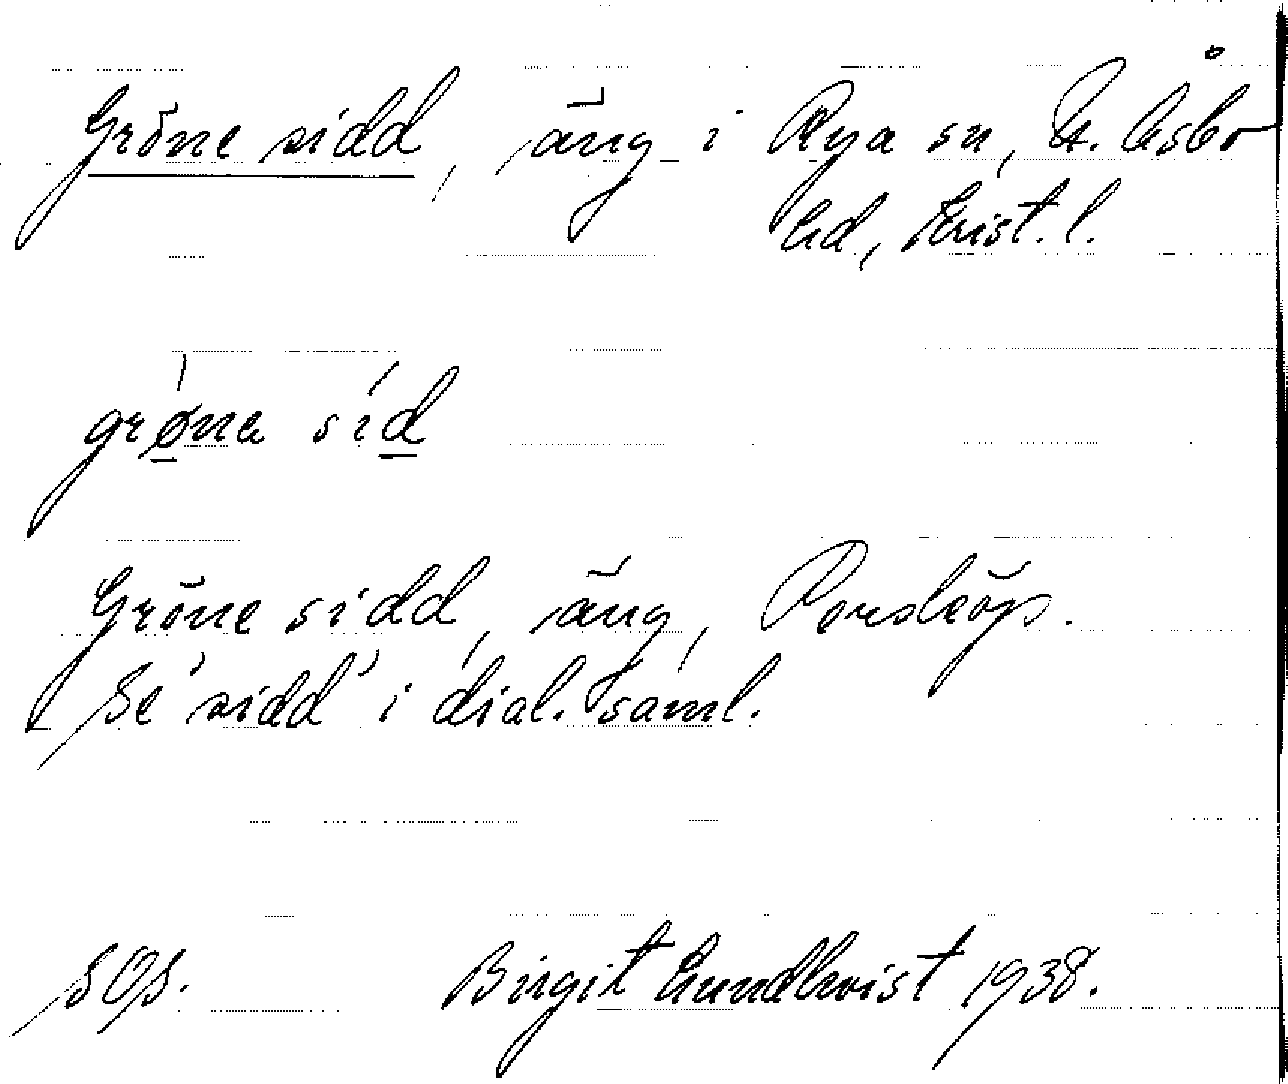 Gröne sidd, äng i Rya sn, N. Åsbo
hd, Krist. l.
grøna sid
Gröne sidd, äng, Porsköp.
Se 'sidd' i dial. saml.
Birgit Lundkvist 1938.